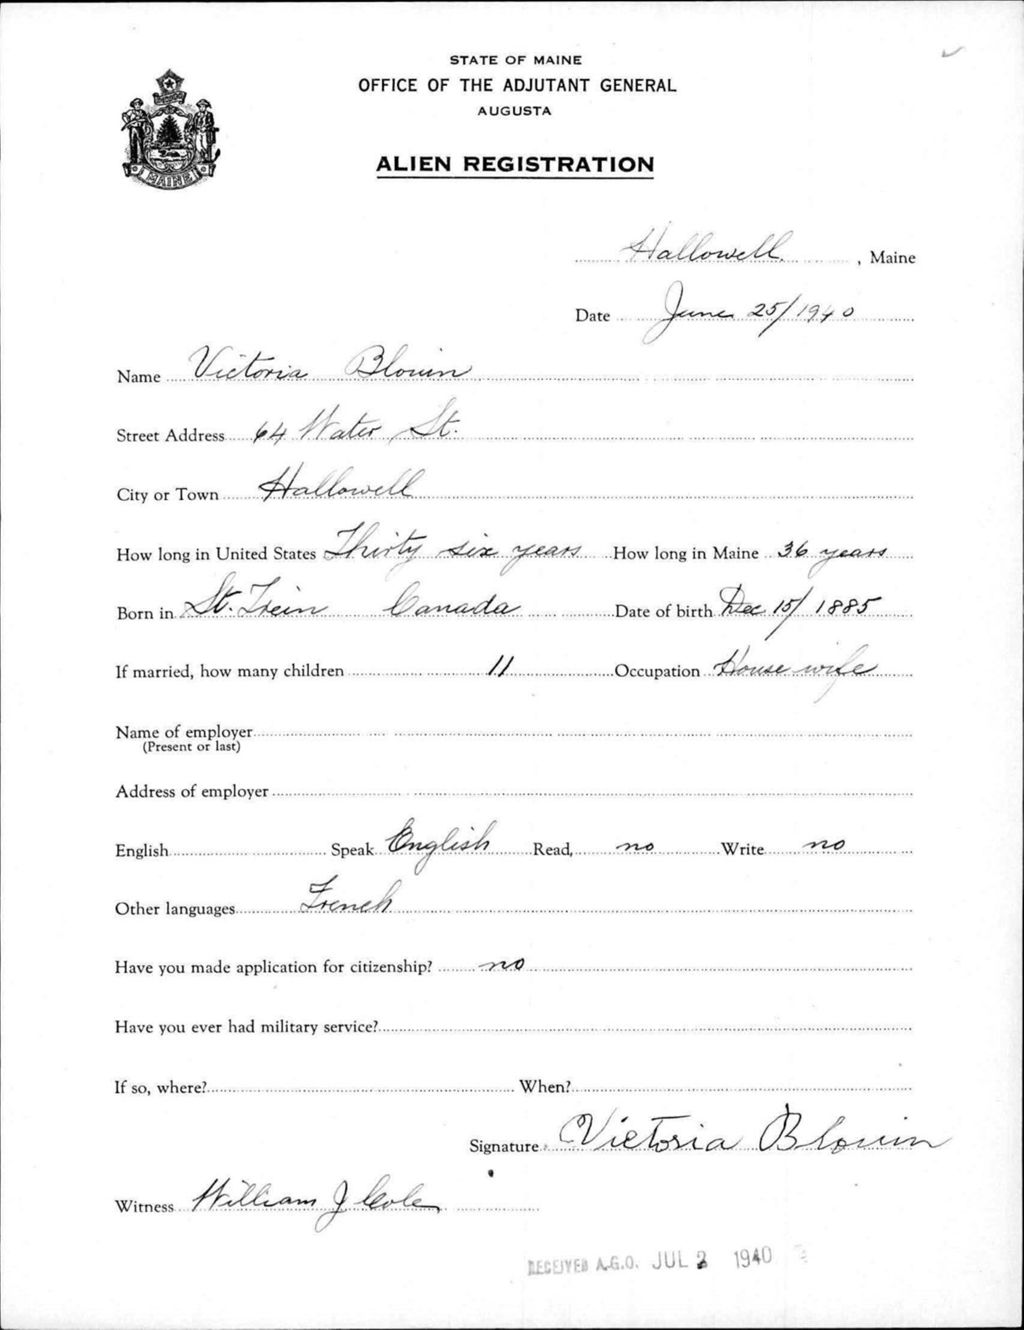 STATE OF MAINE
OFFICE OF THE ADJUTANT GENERAL
AUGUSTA
ALIEN REGISTRATION
MAINE
Hallowell, Maine
Date June 25/1940
Name Victoria Blouin
Street Address 64 Water St.
City or Town Hallowell
How long in United States Thirty six years How long in Maine 36 years
Born in St. Frein Canada Date of birth Dec 15/1885
If married, how many children 11 Occupation House wife
Name of employer
(Present or last)
Address of employer
English Speak English Read, no Write no
Other languages French
Have you made application for citizenship? no
Have you ever had military service?
If so, where? When?
Signature Victoria Blouin
Witness William J Cole
RECEIVED A.G.O. JUL 2 1940